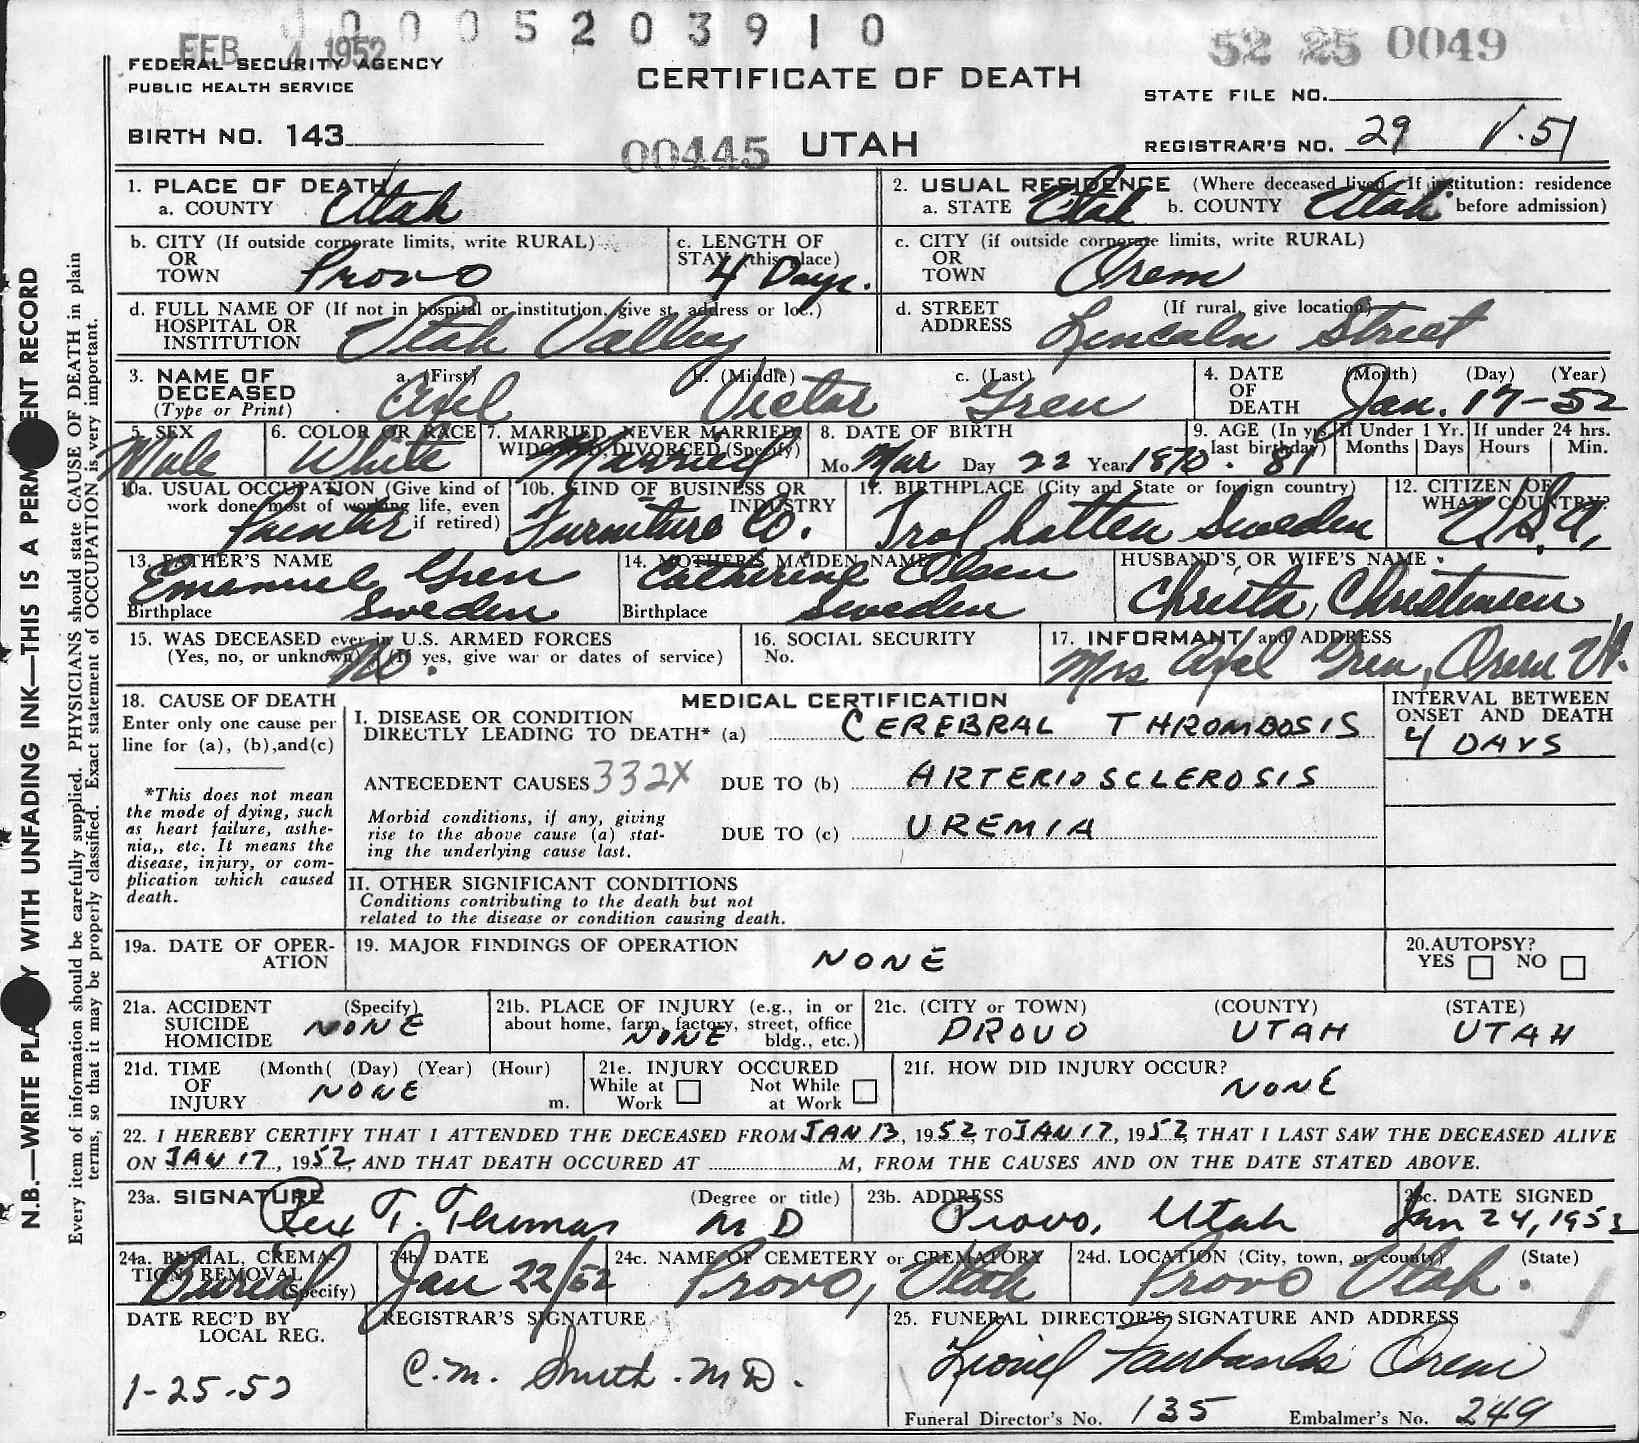 0 0 0 5 2 0 3 9 1 0
FEB 4 1952
52 25 0049
FEDERAL SECURITY AGENCY
PUBLIC HEALTH SERVICE
CERTIFICATE OF DEATH
STATE FILE NO.
BIRTH NO. 143
00445
UTAH
REGISTRAR'S NO. 29 V.51
1. PLACE OF DEATH
a. COUNTY Utah
2. USUAL RESIDENCE (Where deceased lived. If institution: residence before admission)
a. STATE Utah b. COUNTY Utah
b. CITY (If outside corporate limits, write RURAL) OR TOWN Provo
c. LENGTH OF STAY (this place) 4 Days.
c. CITY (if outside corporate limits, write RURAL) OR TOWN Orem
d. FULL NAME OF (If not in hospital or institution, give st. address or loc.) HOSPITAL OR INSTITUTION Utah Valley
d. STREET ADDRESS (If rural, give location) Lincoln Street
3. NAME OF DECEASED (Type or Print)
a. (First) Axel b. (Middle) Victor c. (Last) Gren
4. DATE OF DEATH (Month) (Day) (Year) Jan. 17-52
5. SEX Male
6. COLOR OR RACE White
7. MARRIED, NEVER MARRIED, WIDOWED, DIVORCED (Specify) Married
8. DATE OF BIRTH Mo. Mar Day 22 Year 1870
9. AGE (In yrs last birthday) 81
If Under 1 Yr. Months Days
If under 24 hrs. Hours Min.
10a. USUAL OCCUPATION (Give kind of work done most of working life, even if retired) Painter
10b. KIND OF BUSINESS OR INDUSTRY Furniture Co.
11. BIRTHPLACE (City and State or foreign country) Trolhatten Sweden
12. CITIZEN OF WHAT COUNTRY? U.S.A.
13. FATHER'S NAME Emanuel Gren
Birthplace Sweden
14. MOTHER'S MAIDEN NAME Catherine Olsen
Birthplace Sweden
HUSBAND'S OR WIFE'S NAME
Christa, Christensen
15. WAS DECEASED ever in U.S. ARMED FORCES
(Yes, no, or unknown) (If yes, give war or dates of service) No.
16. SOCIAL SECURITY No.
17. INFORMANT and ADDRESS
Mrs Axel Gren, Orem Ut.
18. CAUSE OF DEATH
Enter only one cause per line for (a), (b), and (c)
*This does not mean the mode of dying, such as heart failure, asthenia,, etc. It means the disease, injury, or complication which caused death.
MEDICAL CERTIFICATION
INTERVAL BETWEEN ONSET AND DEATH
4 DAYS
I. DISEASE OR CONDITION DIRECTLY LEADING TO DEATH* (a) CEREBRAL THROMBOSIS
ANTECEDENT CAUSES 332X DUE TO (b) ARTERIOSCLEROSIS
Morbid conditions, if any, giving rise to the above cause (a) stating the underlying cause last.
DUE TO (c) UREMIA
II. OTHER SIGNIFICANT CONDITIONS
Conditions contributing to the death but not related to the disease or condition causing death.
19a. DATE OF OPERATION
19. MAJOR FINDINGS OF OPERATION NONE
20. AUTOPSY? YES NO
21a. ACCIDENT SUICIDE HOMICIDE (Specify) NONE
21b. PLACE OF INJURY (e.g., in or about home, farm, factory, street, office bldg., etc.) NONE
21c. (CITY or TOWN) (COUNTY) (STATE)
PROVO UTAH UTAH
21d. TIME OF INJURY (Month( (Day) (Year) (Hour) m. NONE
21e. INJURY OCCURED While at Work Not While at Work
21f. HOW DID INJURY OCCUR? NONE
22. I HEREBY CERTIFY THAT I ATTENDED THE DECEASED FROM JAN 13, 1952 TO JAN 17, 1952, THAT I LAST SAW THE DECEASED ALIVE
ON JAN 17, 1952, AND THAT DEATH OCCURED AT M, FROM THE CAUSES AND ON THE DATE STATED ABOVE.
23a. SIGNATURE (Degree or title) Rex T. Thomas MD
23b. ADDRESS Provo, Utah
23c. DATE SIGNED Jan 24, 1952
24a. BURIAL, CREMATION, REMOVAL (Specify) Burial
24b. DATE Jan 22/52
24c. NAME OF CEMETERY or CREMATORY Provo, Utah
24d. LOCATION (City, town, or county) (State) Provo Utah.
DATE REC'D BY LOCAL REG.
1-25-52
REGISTRAR'S SIGNATURE
C.M. Smith. M D.
25. FUNERAL DIRECTOR'S SIGNATURE AND ADDRESS
Lionel Fairbanks Orem
Funeral Director's No. 135 Embalmer's No. 249
N.B.—WRITE PLA Y WITH UNFADING INK—THIS IS A PERM ENT RECORD
Every item of information should be carefully supplied. PHYSICIANS should state CAUSE OF DEATH in plain
terms, so that it may be properly classified. Exact statement of OCCUPATION is very important.